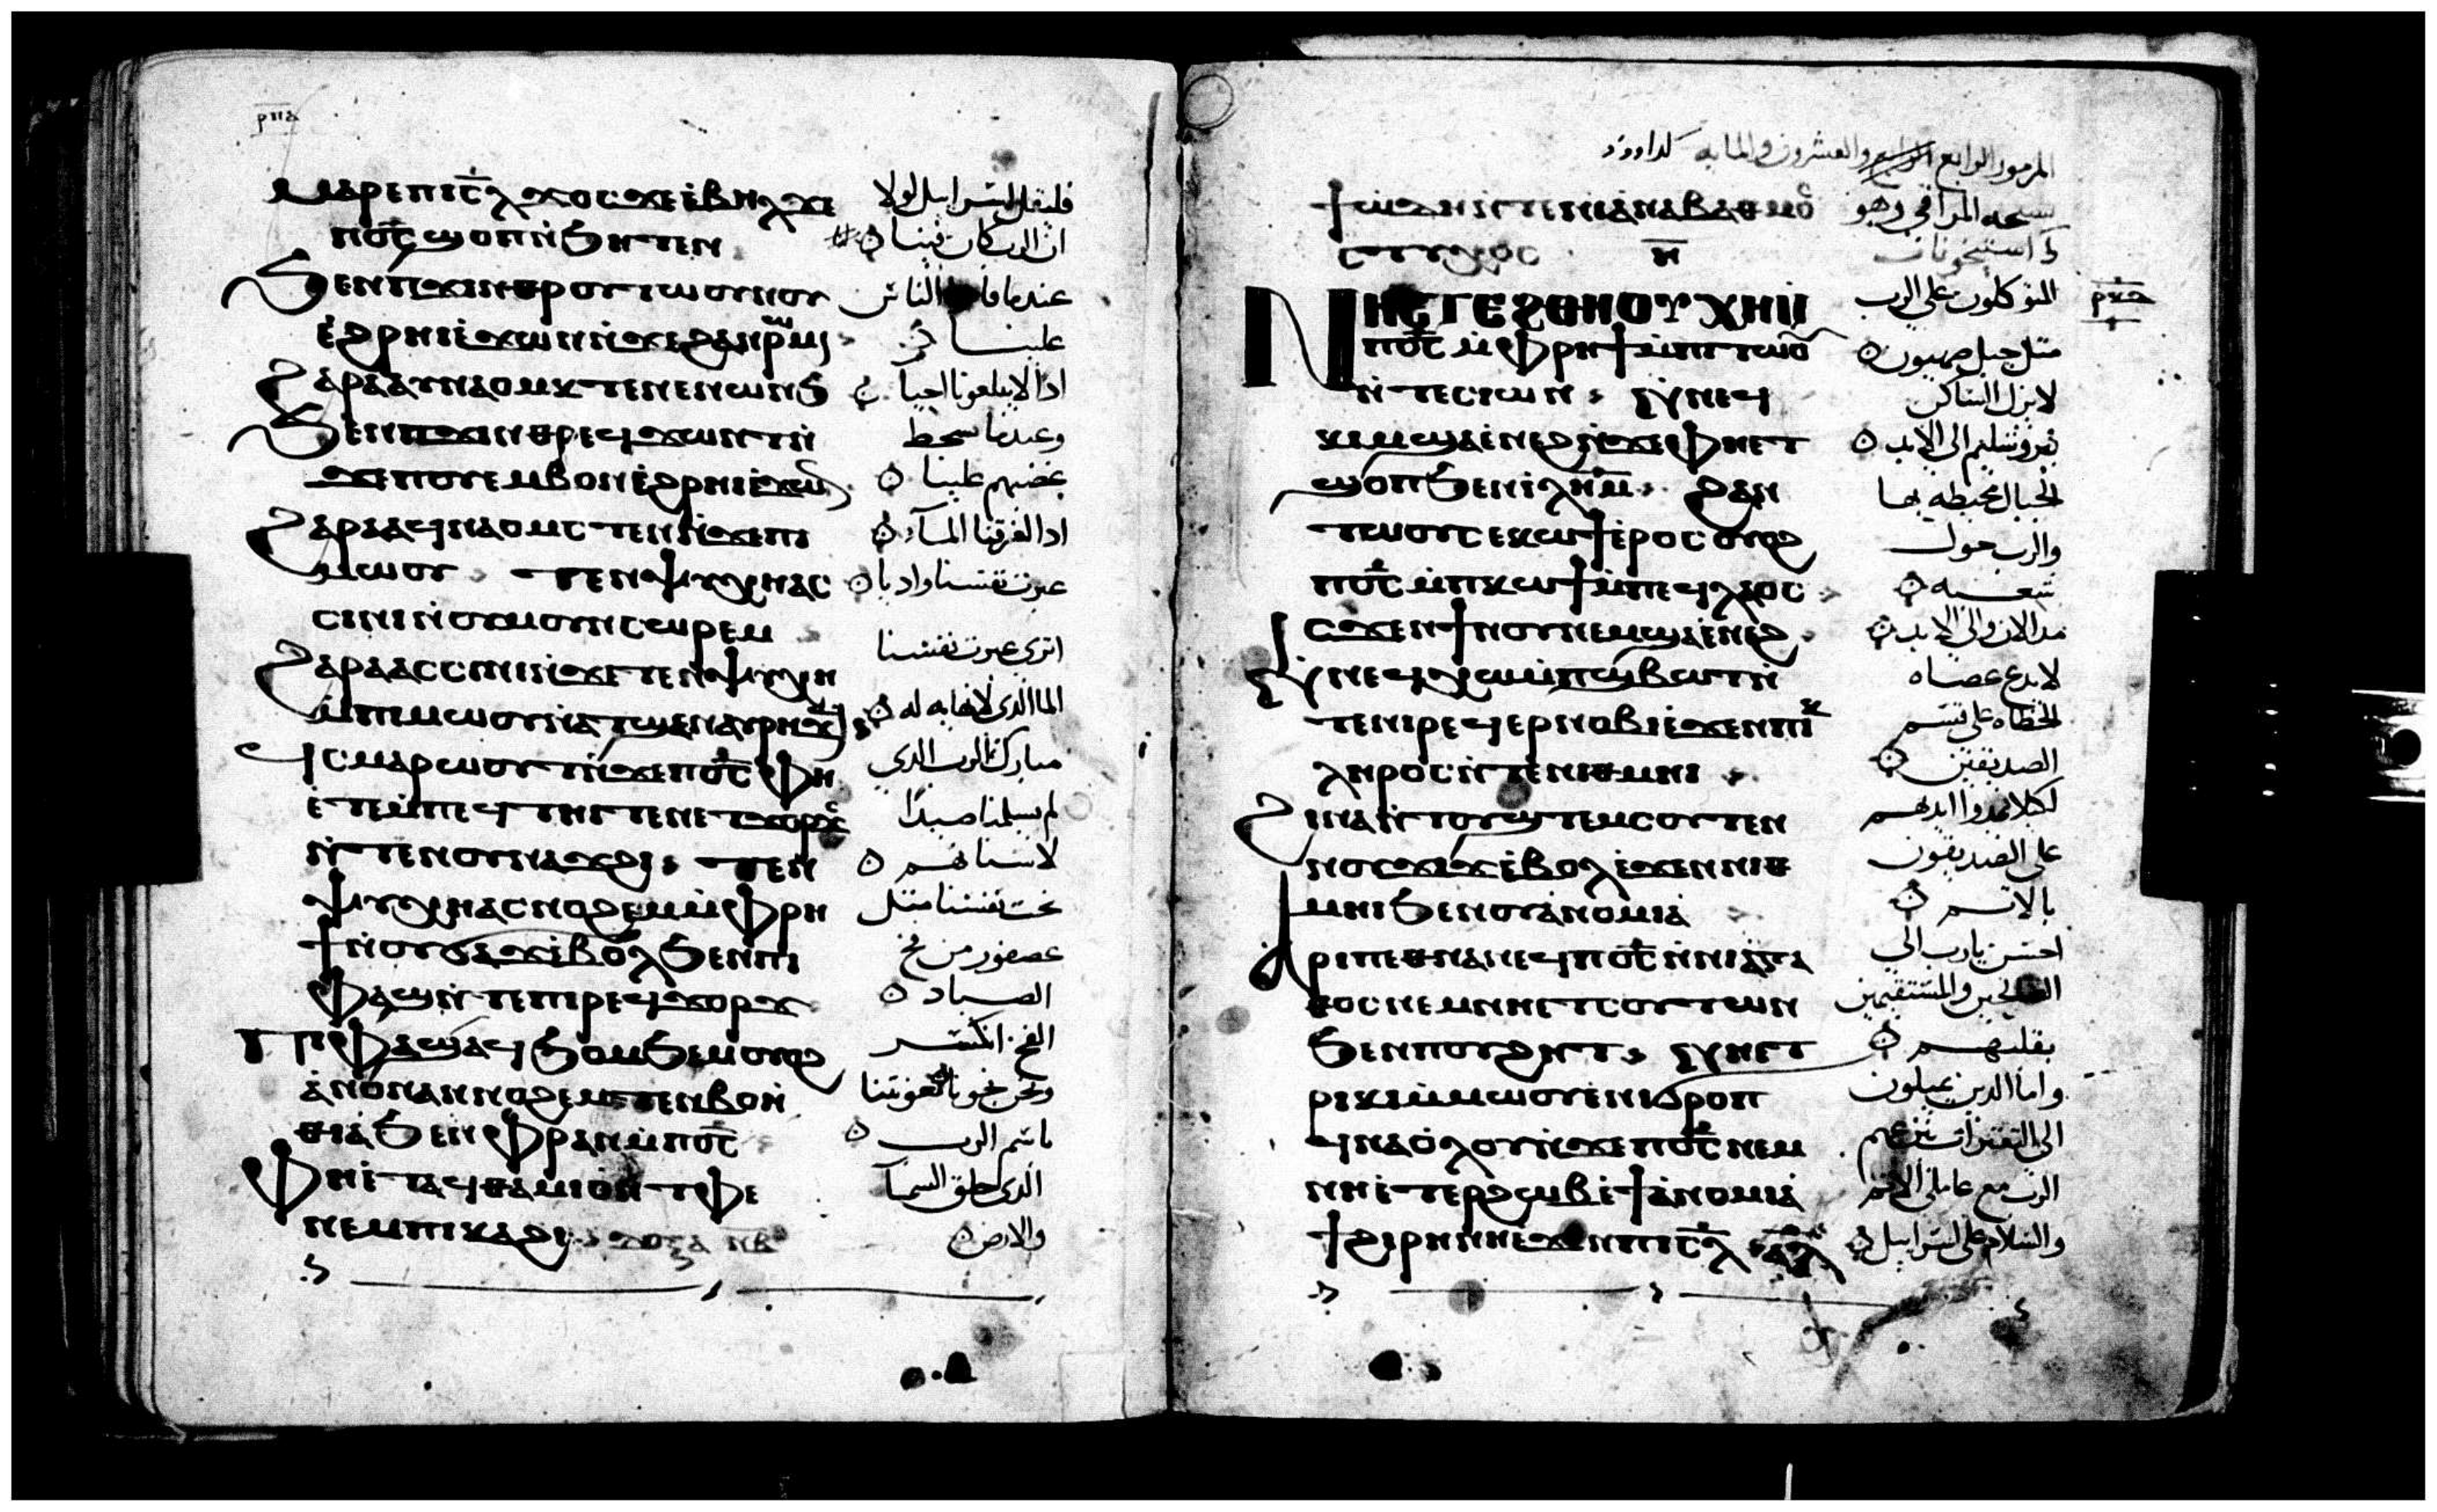 ⲣⲡⲁ
ⲙⲁⲣⲉⲡⲓⲥ̅ⲗ ϫⲟⲥ ϫⲉ ⲉ̀ⲃⲏⲗ ϫⲉ فليقل اسرايل لولا
ⲡⲟ̅ⲥ̅ ϣⲟⲡ ⲛ̀ϧⲏⲧⲉⲛ ان الرب كان فينا
ϧⲉⲛⲡϫⲓⲛⲑⲣⲟⲩⲧⲱⲟⲩⲛⲟⲩ عندما قام الناس
ⲉ̀ϩⲣⲏⲓ ⲉ̀ϫⲱⲛ ⲛ̀ϫⲉ ϩⲁⲛⲣⲱⲙⲓ علينا
ϩⲁⲣⲁ ⲁⲩⲛⲁⲟⲙⲕⲧⲉⲛ ⲉⲛⲱⲛϧ اذا لابتلعونا احيا
ϧⲉⲛⲡϫⲓⲛⲑⲣⲉϥϫⲱⲛⲧ ⲛ̀ وعندما سخط
ϫⲉ ⲡⲟⲩⲉⲙⲃⲟⲛ ⲉ̀ϩⲣⲏⲓ ⲉ̀ϫⲱⲛ غضبهم علينا
ϩⲁⲣⲁ ⲁϥⲛⲁⲟⲙⲥⲧⲉⲛ ⲛ̀ϫⲉ ⲡⲓ اذا لغرقنا المآء
ⲙⲱⲟⲩ ⲧⲉⲛⲯⲩⲭⲏ ⲁⲥ عبرت نفسنا واديا
ⲥⲓⲛⲓ ⲛ̀ⲟⲩⲙⲟⲩⲛⲥⲱⲣⲉⲙ
ϩⲁⲣⲁ ⲁⲥⲥⲓⲛⲓ ⲛ̀ϫⲉ ⲧⲉⲛⲯⲩⲭⲏ اترى عبرت نفسنا
ⲙ̀ⲡⲓⲙⲱⲟⲩ ⲛ̀ⲁⲧϣⲉⲛⲁⲩⲣⲏϫϥ الما الذى لا نهايه له
ϥⲥⲙⲁⲣⲱⲟⲩⲧ ⲛ̀ϫⲉ ⲡⲟ̅ⲥ̅ ⲫⲏ مبارك الرب الذي
ⲉ̀ⲧⲉⲙ̀ⲡⲉϥⲧⲏⲓⲧⲉⲛ ⲉⲧϫⲟⲣϫⲥ لم يسلمنا صيدًا
ⲛ̀ⲧⲉⲛⲟⲩⲛⲁϫϩⲓ ⲧⲉⲛ لاسنانهم
ⲯⲩⲭⲏ ⲁⲥⲛⲟϩⲉⲙ ⲙ̀ⲫⲣⲏ نجت نفسنا مثل
ϯ ⲛ̀ⲟⲩϭⲁϫ ⲉ̀ⲃⲟⲗ ϧⲉⲛ ⲡⲓ عصفور من فخ
ⲫⲁϣ ⲛ̀ⲧⲉ ⲡⲓⲣⲉϥϫⲟⲣϫ الصياد
ⲡⲓⲫⲁϣ ⲁϥϧⲟⲙϧⲉⲙ ⲟⲩⲟϩ الفخ انكسر
ⲁ̀ⲛⲟⲛ ⲁⲛⲛⲟϩⲉⲙ ⲧⲉⲛⲃⲟⲏ̀ ونحن نجونا معونتنا
ⲑⲓⲁ̀ ϧⲉⲛ ⲫⲣⲁⲛ ⲙ̀ⲡⲟ̅ⲥ̅ باسم الرب
ⲫⲏⲉ̀ⲧⲁϥⲑⲁⲙⲓⲟ̀ ⲛ̀ⲧⲫⲉ الذى خلق السمآ
ⲛⲉⲙ ⲡⲓⲕⲁϩⲓ والارض
المزمور الرابع والعشرون والمايه لداوود
ϯϩⲱⲇⲏ ⲛ̀ⲧⲉ ⲛⲓⲁ̀ⲛⲁⲃⲁⲑⲙⲟⲥ تسبحه المراقي وهو
ⲥⲧⲩⲭⲟⲥ ⲏ̅ استيخونات
ⲛⲏⲉⲧⲉ ϩⲑⲏⲟⲩ ⲭⲏ ⲉ̀ المتوكلون على الرب ⲣⲕⲇ
ⲡⲟ̅ⲥ̅ ⲙ̀ⲫⲣⲏϯ ⲙ̀ⲡⲧⲱⲟⲩ مثل جبل صهيون
ⲛ̀ⲧⲉ ⲥⲓⲱⲛ ⲛ̀ⲛⲉϥ لا يزل الساكن
ⲕⲓⲙ ϣⲁ ⲉ̀ⲛⲉϩ ⲛ̀ϫⲉ ⲫⲏⲉⲧ يروشليم الى الابد
ϣⲟⲡ ϧⲉⲛ ⲓ̀ⲗⲏⲙ ϩⲁⲛ الجبال محيطه بها
ⲧⲱⲟⲩ ⲥⲉⲕⲱϯ ⲉ̀ⲣⲟⲥ ⲟⲩⲟϩ والرب حول
ⲡⲟ̅ⲥ̅ ⲙ̀ⲡⲕⲱϯ ⲙ̀ⲡⲉϥⲗⲁⲟⲥ شعبه
ⲓⲥϫⲉⲛ ϯⲛⲟⲩ ⲛⲉⲙ ϣⲁ ⲉ̀ⲛⲉϩ مد الان والى الابد
ⲛ̀ⲛⲉϥⲭⲱ ⲙ̀ⲡϣⲃⲱⲧ ⲛ̀ لا يدع عصاه
ⲧⲉ ⲛⲓⲣⲉϥⲉⲣⲛⲟⲃⲓ ⲉ̀ϫⲉⲛ ⲡⲓⲕ الخطاه على قسم
ⲗⲏⲣⲟⲥ ⲛ̀ⲧⲉ ⲛⲓⲑⲙⲏⲓ الصديقين
ϩⲓⲛⲁ ⲛ̀ⲧⲟⲩϣⲧⲉⲙⲥⲟⲩⲧⲉⲛ لكيلا يمدوا ايديهم
ⲛⲟⲩϫⲓϫ ⲉ̀ⲃⲟⲗ ⲉ̀ϫⲉⲛ ⲛⲓⲑ على الصديقون
ⲙⲏⲓ ϧⲉⲛ ⲟⲩⲁ̀ⲛⲟⲙⲓⲁ̀ بالاثم
ⲁ̀ⲣⲓⲡⲉⲑⲛⲁⲛⲉϥ ⲡⲟ̅ⲥ̅ ⲛ̀ⲛⲓⲁ̀ⲅⲁ احسن يارب الى
ⲑⲟⲥ ⲛⲉⲙ ⲛⲏⲉⲧⲥⲟⲩⲧⲱⲛ الصالحين والمستقيمين
ϧⲉⲛ ⲡⲟⲩϩⲏⲧ ⲛⲏⲉⲧ بقلبهم
ⲣⲓⲕⲓ ⲙ̀ⲙⲱⲟⲩ ⲉ̀ⲛⲓϭⲣⲟⲡ واما الدين يميلون
ϥⲛⲁⲟ̀ⲗⲟⲩ ⲛ̀ϫⲉ ⲡⲟ̅ⲥ̅ ⲛⲉⲙ الى العثرات ينزعهم
ⲛⲏⲉ̀ⲧⲉⲣϩⲱⲃ ⲉ̀ϯⲁ̀ⲛⲟⲙⲓⲁ̀ الرب مع عاملى الاثم
ϯϩⲓⲣⲏⲛⲏ ⲉ̀ϫⲉⲛ ⲡⲓⲥ̅ⲗ ⲁⲗ والسلام على اسرايل